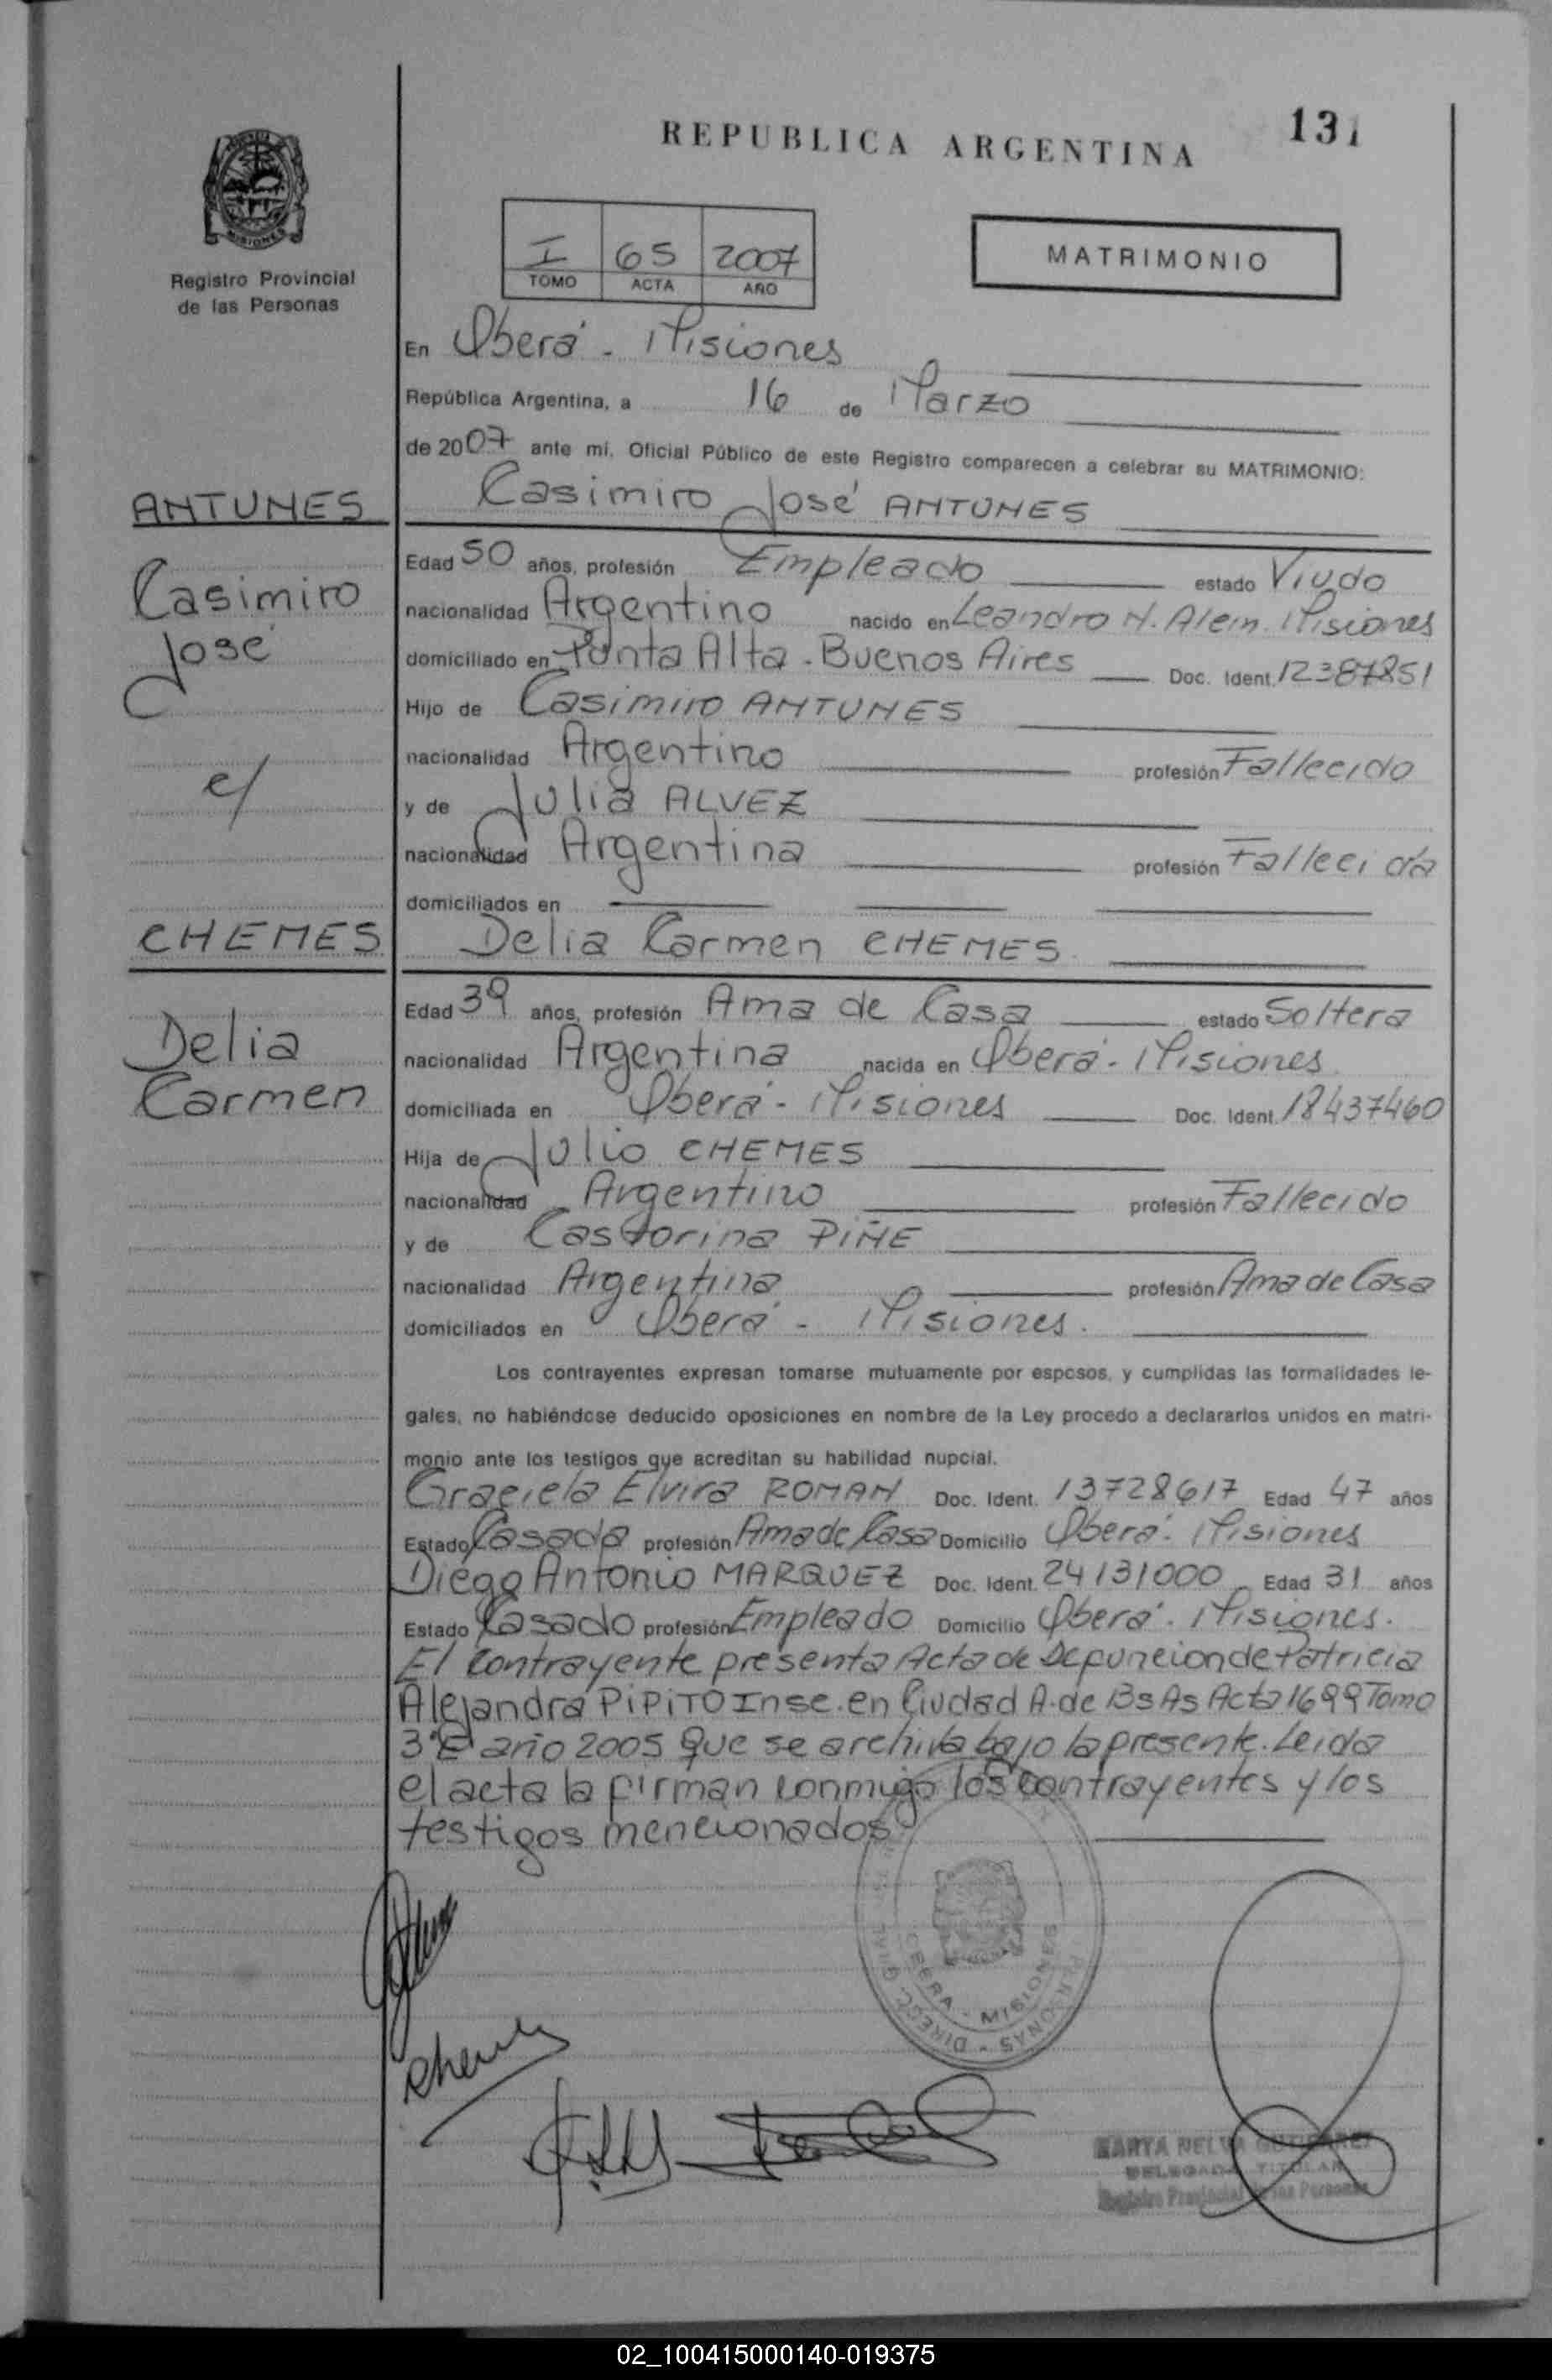 REPUBLICA ARGENTINA
131
MISIONES
Registro Provincial
de las Personas
I 65 2007
TOMO ACTA AÑO
MATRIMONIO
En Oberá - Misiones
República Argentina, a 16 de Marzo
de 2007 ante mi, Oficial Público de este Registro comparecen a celebrar su MATRIMONIO:
ANTUNES
Casimiro José ANTUNES
Casimiro
José
c/
Edad 50 años, profesión Empleado estado Viudo
nacionalidad Argentino nacido en Leandro N. Alem. Misiones
domiciliado en Punta Alta - Buenos Aires Doc. Ident. 12387851
Hijo de Casimiro ANTUNES
nacionalidad Argentino profesión Fallecido
y de Julia ALVEZ
nacionalidad Argentina profesión Fallecida
domiciliados en
CHEMES
Delia Carmen CHEMES
Delia
Carmen
Edad 39 años, profesión Ama de Casa estado Soltera
nacionalidad Argentina nacida en Oberá - Misiones
domiciliada en Oberá - Misiones Doc. Ident. 18437460
Hija de Julio CHEMES
nacionalidad Argentino profesión Fallecido
y de Castorina PIÑE
nacionalidad Argentina profesión Ama de Casa
domiciliados en Oberá - Misiones.
Los contrayentes expresan tomarse mutuamente por esposos, y cumplidas las formalidades le-
gales, no habiéndose deducido oposiciones en nombre de la Ley procedo a declararlos unidos en matri-
monio ante los testigos que acreditan su habilidad nupcial.
Graciela Elvira ROMAN Doc. Ident. 13728617 Edad 47 años
Estado Casada profesión Ama de Casa Domicilio Oberá - Misiones
Diego Antonio MARQUEZ Doc. Ident. 24131000 Edad 31 años
Estado Casado profesión Empleado Domicilio Oberá - Misiones.
El contrayente presenta Acta de Defuncion de Patricia
Alejandra PIPITO Insc. en Ciudad A. de Bs As Acta 1699 Tomo
3°E año 2005 que se archiva bajo la presente. Leida
el acta la firman conmigo los contrayentes y los
testigos mencionados
OBERA - MISIONES
PERSONAS - DIRECC
Chemes
DELEGADA TITULAR
Registro Provincial de las Personas
02_100415000140-019375